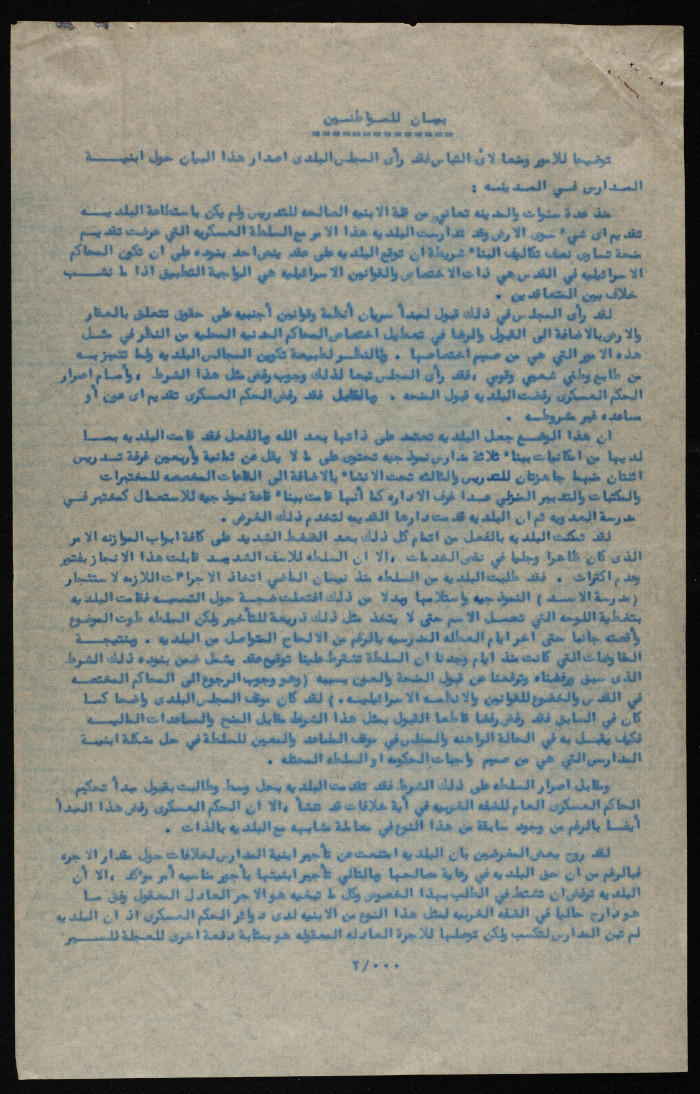 بيان للمواطنين
توضيحا للامور ومنعا لائ التباس فقد رأى المجلس البلدى اصدار هذا البيان حول ابنيـــة
المدارس فـي المدينـه :
منذ عدة سنوات والمدينه تعاني من قلة الابنيه الصالحه للتدريس ولم يكن باستطاعة البلديـــه
تقديم اى شيء سوى الارض وقد تدارست البلديه هذا الامر مع السلطة العسكريه التي عرضت تقديـم
منحة تساوى نصف تكاليف البناء شريطة ان توقع البلديه على عقد ينص احد بنوده على ان تكون المحاكم
الاسرائيليه في القدس هي ذات الاختصاص والقوانين الاسرائيليه هي الواجبة التطبيق اذا ما نشـب
خلاف بين المتعاقدين .
لقد رأى المجلس في ذلك قبول لمبدأ سريان أنظمة وقوانين أجنبيه على حقوق تتعلق بالعقار
والارض بالاضافة الى القبول والرضا في تعطيل اختصاص المحاكم المدنيه المحليه من النظر في مثــل
هذه الامور التي هي من صميم اختصاصها . وبالنظــر لطبيعة تكوين المجالس البلديه وما تتميز بــه
من طابع وطني شعبي وقومي ، فقد رأى المجلس تبعا لذلك وجوب رفض مثل هذا الشرط ، وأمام اصرار
الحكم العسكرى رفضت البلديه قبول المنحه . وبالمقابل فقد رفض الحكم العسكرى تقديم اى عون أو
مساعده غير مشروطه .
ان هذا الوضع جعل البلديه تعتمد على ذاتها بعد الله وبالفعل فقد قامت البلديه بمــا
لديها من امكانيات ببناء ثلاثة مدارس نموذجيه تحتوى على ما لا يقل عن ثمانية وأربعين غرفة تدريس
اثنتان منها جاهزتان للتدريس والثالثه تحت الانشاء بالاضافة الى القاعات المخصصه للمختبرات
والمكتبات والتدبير المنزلي عدا غرف الاداره كما أنها قامت ببناء قاعة نموذجيه للاستعمال كمختبر فـي
مدرسة العدويه ثم ان البلديه قدمت دارها القديمه لتخدم ذلك الغرض .
لقد تمكنت البلديه بالفعل من اتمام كل ذلك بعد الضغط الشديد على كافة ابواب الموازنه الامر
الذى كان ظاهرا وجليا في نقص الخدمات ، الا ان السلطه للاسف الشديـد قابلت هذا الانجاز بفتور
وعدم اكتراث . فقد طلبت البلديه من السلطه منذ نيسان الماضي اتخاذ الاجراءات اللازمه لاستئجار
(مدرسة الاسـد) النموذجيه واستلامها وبدلا من ذلك افتعلت ضجة حول التسميـه فقامت البلديه
بتغطية اللوحه التي تحمـل الاسم حتى لا يتخذ مثل ذلك ذريعة للتأخير ولكن السلطه طوت الموضوع
وأقصته جانبا حتى اخر ايام العطله المدرسيه بالرغم من الالحاح المتواصل من البلديه . وبنتيجـة
المفاوضات التي كانت منذ ايام وجدنا ان السلطة تشترط علينا توقيع عقد يشمل ضمن بنوده ذلك الشرط
الذى سبق ورفضناه وترفعنا عن قبول المنحة والعون بسببه (وهو وجوب الرجوع الى المحاكم المختصـه
في القدس والخضوع للقوانين والانظمـه الاسرائيليـه .) لقد كان موقف المجلس البلدى واضحا كمـا
كان في السابق فقد رفض رفضا قاطعا القبول بمثل هذا الشرط مقابل المنح والمساعدات الماليـه
فكيف يقبـل به في الحالة الراهنه والمجلس في موقف المساعد والمعين للسلطة في حل مشكلة ابنيـة
المدارس التي هي من صميم واجبات الحكومه او السلطه المحتله .
ومقابل اصرار السلطه على ذلك الشرط فقد تقدمت البلديه بحل وسط وطالبت بقبول مبدأ تحكيم
الحاكم العسكرى العام للضفه الغربيه في أية خلافات قد تنشأ ، الا ان الحكم العسكرى رفض هذا المبدأ
أيضـا بالرغم من وجود سابقة من هذا النوع في معاملة مشابهه مع البلديه بالذات .
لقد روج بعض المغرضين بان البلديه امتنعت عن تأجير ابنية المدارس لخلافات حول مقدار الاجره
فبالرغم من ان حق البلديه في رعاية مصالحها وبالتالي تأجير ابنيتها بأجور مناسبه أمر مؤكد ، الا أن
البلديه ترفض ان تشتط في الطلب بهذا الخصوص وكل ما تبغيه هو الاجر العادل المعقول وفق مـا
هو دارج حاليا في الضفه الغربيه لمثل هذا النوع من الابنيه لدى دوائر الحكم العسكرى اذ ان البلديه
لم تبن المدارس لتكسب ولكن توصلها للاجرة العادله المعقوله هو بمثابة دفعة اخرى للعجلة للـسيـر
٢/٠٠٠